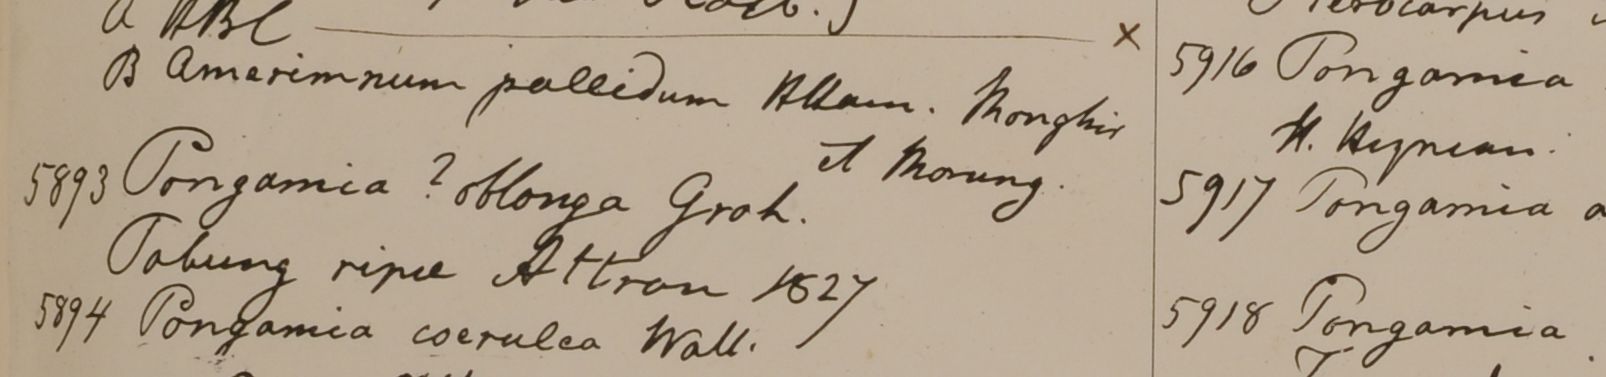 a ABC x
B Amerimnum pallidum Ham. Monghir
et Morung.
5893 Pongamia ? oblonga Grah.
Tabung ripæ Attran 1827
5894 Pongamia coerulea Wall.
Pterocarpus
5916 Pongamia
H. Heynean.
5917 Pongamia
5918 Pongamia